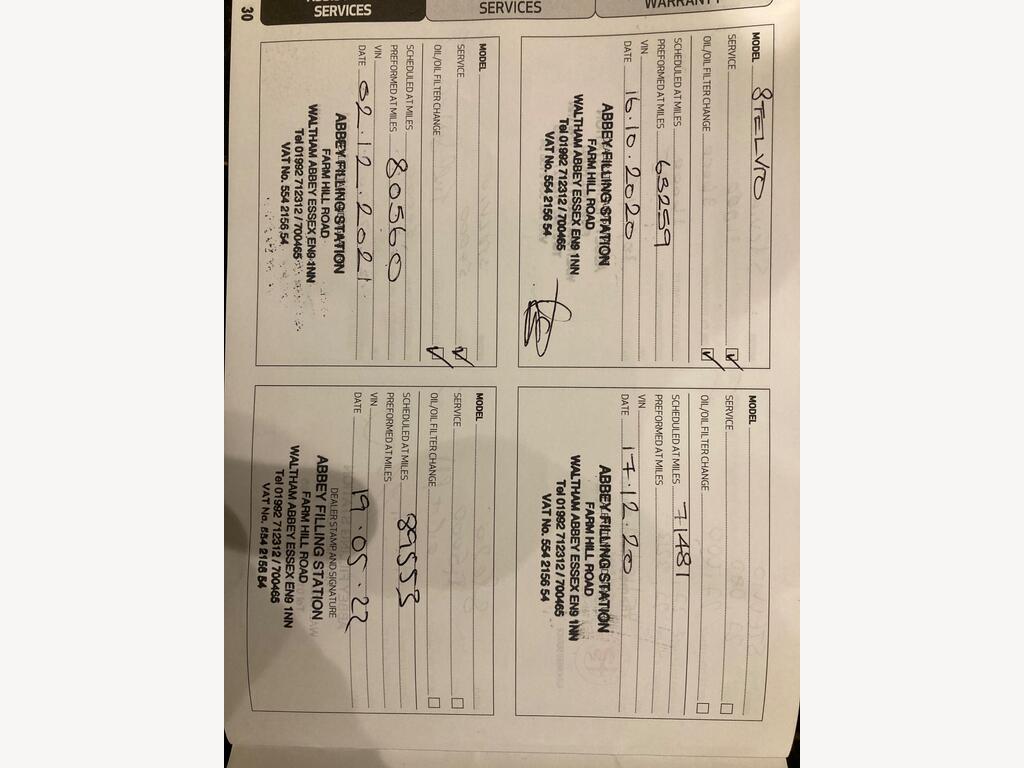 SERVICES
SERVICES
WARRANTY
30
MODEL STELVIO
SERVICE
OIL/OIL FILTER CHANGE
SCHEDULED AT MILES
PREFORMED AT MILES 63259
VIN
DATE 16.10.2020
ABBEY FILLING STATION
FARM HILL ROAD
WALTHAM ABBEY ESSEX EN9 1NN
Tel 01992 712312 / 700465
VAT No. 554 2156 54
MODEL
SERVICE
OIL/OIL FILTER CHANGE
SCHEDULED AT MILES 71481
PREFORMED AT MILES
VIN
DATE 17.12.20
ABBEY FILLING STATION
FARM HILL ROAD
WALTHAM ABBEY ESSEX EN9 1NN
Tel 01992 712312 / 700465
VAT No. 554 2156 54
MODEL
SERVICE
OIL/OIL FILTER CHANGE
SCHEDULED AT MILES
PREFORMED AT MILES 80560
VIN
DATE 02.12.2021
ABBEY FILLING STATION
FARM HILL ROAD
WALTHAM ABBEY ESSEX EN9 1NN
Tel 01992 712312 / 700465
VAT No. 554 2156 54
MODEL
SERVICE
OIL/OIL FILTER CHANGE
SCHEDULED AT MILES 89553
PREFORMED AT MILES
VIN
DATE 19.05.22
DEALER STAMP AND SIGNATURE
ABBEY FILLING STATION
FARM HILL ROAD
WALTHAM ABBEY ESSEX EN9 1NN
Tel 01992 712312 / 700465
VAT No. 554 2156 54